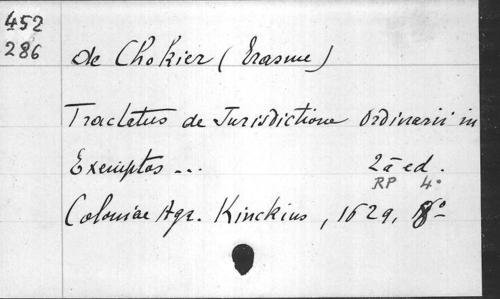 452
286
de Chokier (Erasme)
Tractatus de Jurisdictione Ordinarii in
Exemptos ... 2ā ed.
RP 4°
Coloniae Agr. Kinckius, 1629, 8°